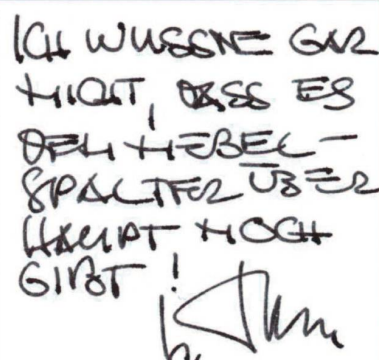 ICH WUSSTE GAR
NICHT, DASS ES
DEN NEBEL-
SPALTER ÜBER
HAUPT NOCH
GIBT!